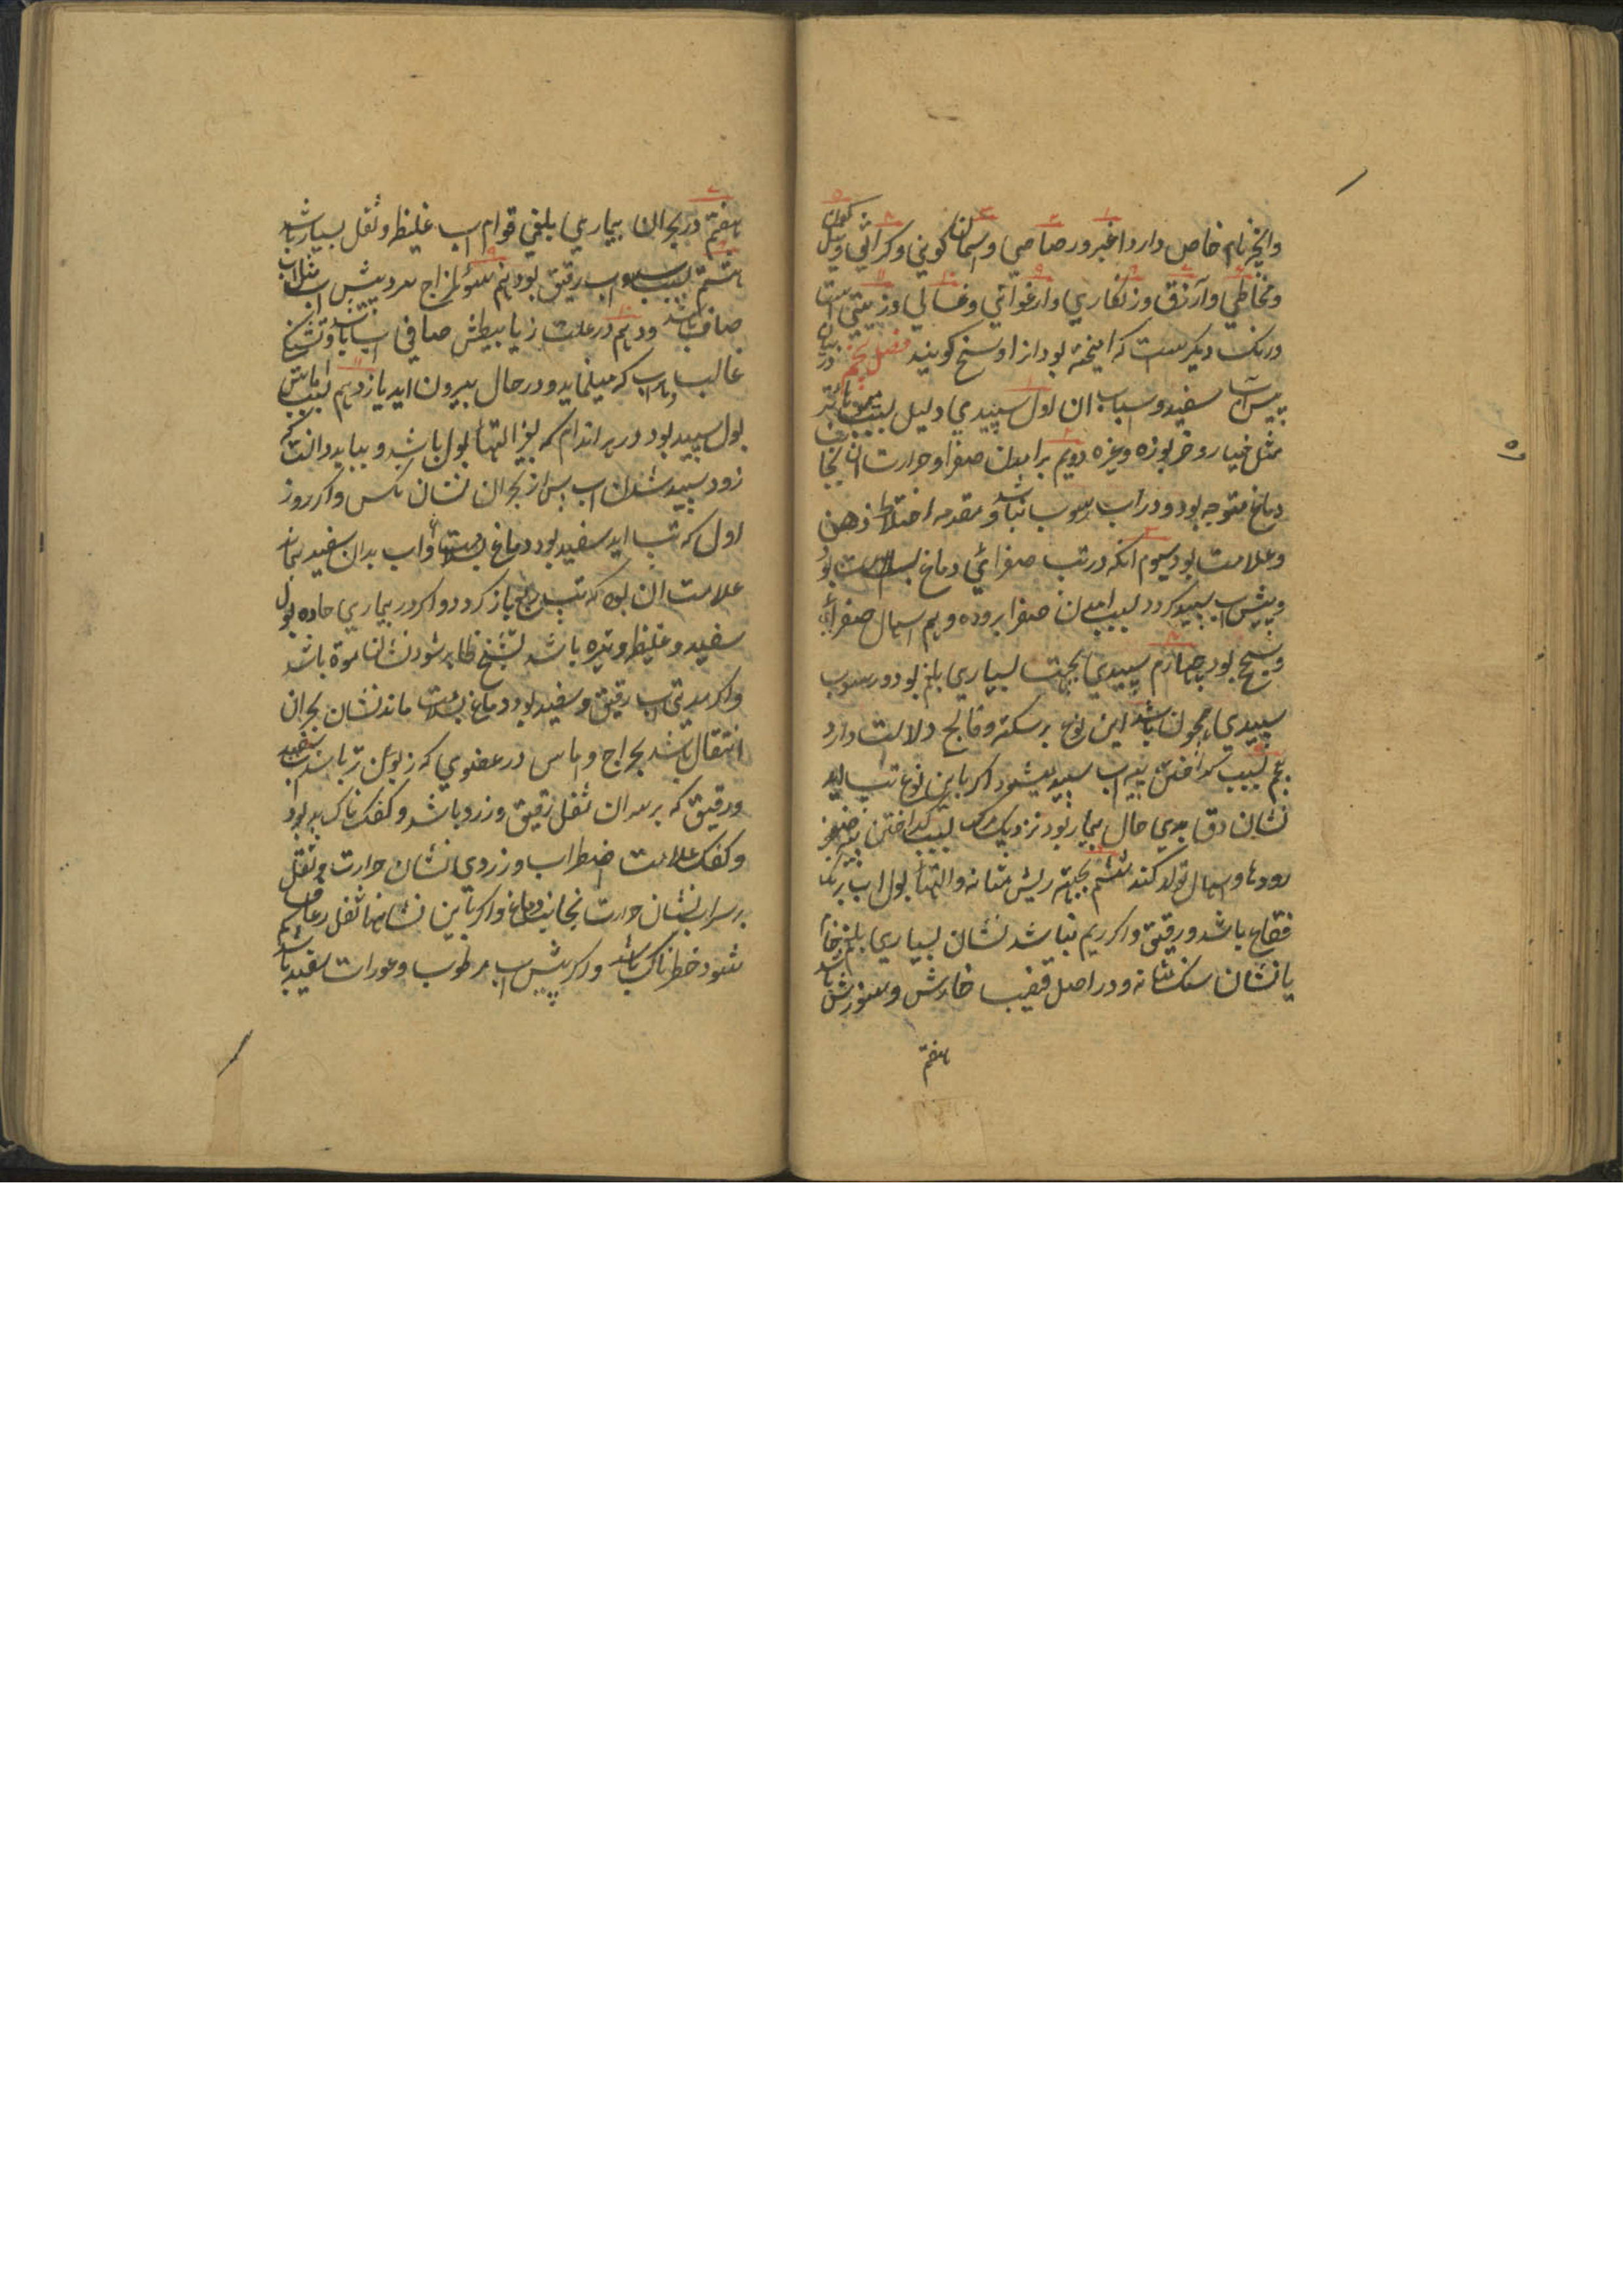 وانچه نام خاص دارد اغبر و رصاصی و اسمان کونی و کراثی و نیل
و مخاطی و ازرق و زنکاری و ارغوانی و غسالی و زیتی است
و رنک دیکرست که امیخته بود انرا وسخ کویند فصل پنجم در بیان
پیش اب سفید و اسباب ان اول سپیدی دلیل بسبب
مثل خیار و خربوزه و غیره دویم برامدن صفرا و حرارت ان بجا
دماغ متوجه بود و در اب رسوب نباشد و مقدمه اختلاط ذهن
و علامت بود سیوم انکه در تب صفرائی دماغ بسلامت بود
و پیش اب سپید کردد بسبب امدن صفرا بروده و بیم اسهال صفرائی
و سحج بود چهارم سپیدی بجهت بسیاری بلغم بود و رسوب
سپیدی همچون باشد این نوع بر سکته و فالج دلالت دارد
پنجم بسبب کداختن پیه اب سپید میشود اکر باین نوع تب اید
نشان دق بدی حال بیمار بود نزدیک مرک بسبب کداختن پیه
رودها و اسهال تولد کند ششم بجهته ریش مثانه و التهاب بول اب برنک
فقاع باشد و رقیق و اکر ریم نباشد نشان بسیاری بلغم خام
یا نشان سنک مثانه و در اصل قضیب خارش و سوزش باشد
هفتم
هفتم در بحران بیماری بلغمی قوام اب غلیظ و ثفل بسیار باشد
هشتم بسبب اب رقیق بود نهم سوء المزاج سرد پیش اب
صاف باشد و دهم در علت زیابیطش صافی اب باشد و تشنکی
غالب و اب که میلماید در حال بیرون اید یازدهم بسبب اماس
بول سپید بود در هر اندام که بغیر التهاء بول باشد و بباید دانست که
زود سپید شدن اب پس از بحران نشان نکس و اکر روز
اول که تب اید سفید بود دماغ بسلامت و اب بدان سفید بماند
علامت ان بود که تب ربع باز کردد و اکر در بیماری حاده بول
سفید و غلیظ و تیره باشد تشنج ظاهر شود نشان موة باشد
و اکر مدتی اب رقیق و سفید بود و دماغ بسلامت ماند نشان بحران
انتقال باشد بخراج و اماس در عضوی که زبون تر باشد اب سفید
و رقیق که بر سر ان ثفل رقیق و زرد باشد و کفک ناک بد بود
و کفک علامت اضطراب و زردی نشان حرارت و ثفل
بر سر اب نشان حرارت بجانب دماغ و اکر با این نشانها ثفل رعاف هم
شود خطرناک باشد و اکر پیش اب مرطوب و عورات سفید باشد